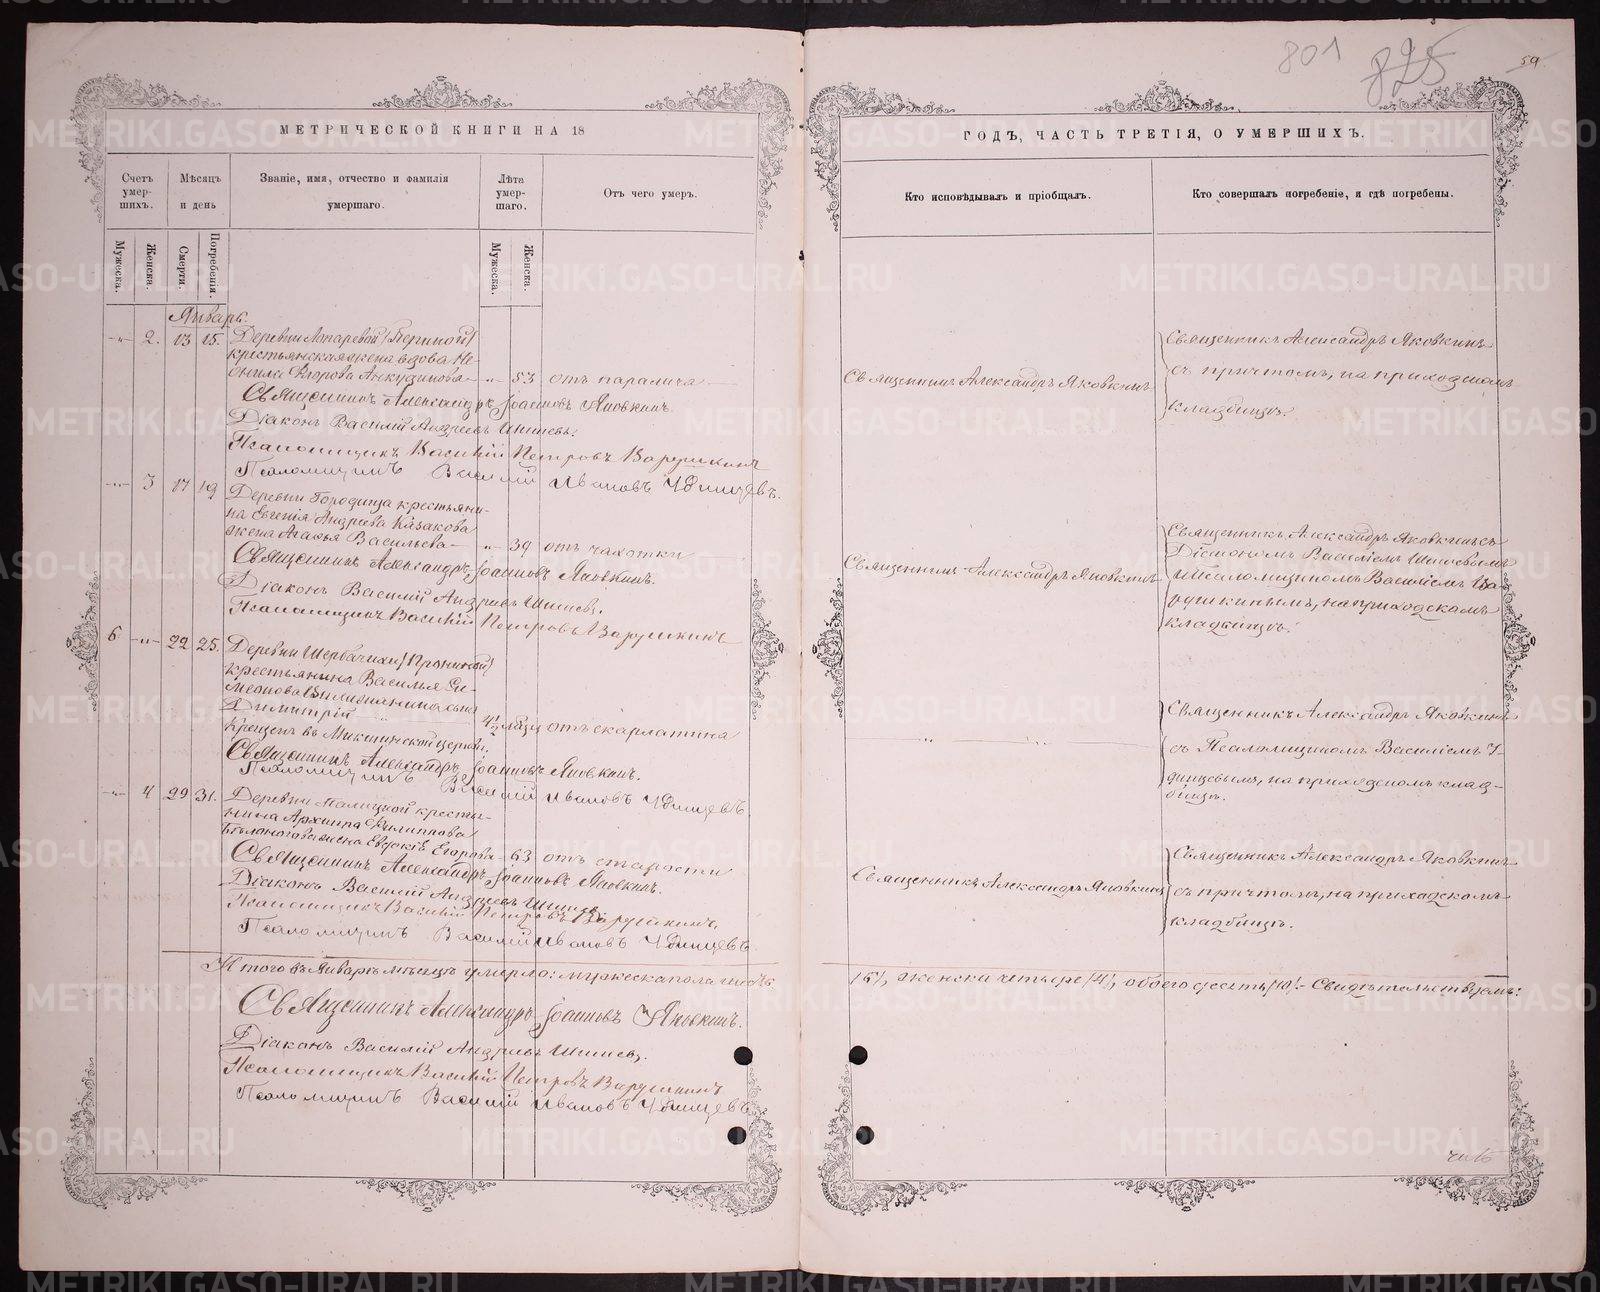 801
825
59
МЕТРИЧЕСКОЙ КНИГИ НА 18
Счетъ умер-шихъ.
Мѣсяцъ и день
Званіе, имя, отчество и фамилія умершаго.
Лѣта умер-шаго.
Отъ чего умеръ.
Мужеска.
Женска.
Смерти.
Погребенія.
Мужеска.
Женска.
Январь.
-"- 2. 13 15. Деревни
крестьянская жена вдова Не-
онила Егорова Анкудинова -"- 53 отъ паралича
Священникъ Александръ Іоанновъ Яковкинъ.
Діаконъ Василій Андреевъ Шишевъ.
Псаломщикъ Василій Петровъ Варушкинъ
Псаломщикъ Василій Ивановъ Удинцевъ.
-"- 3 17 19 Деревни Городища крестьяни-
на Евгенія Андреева Казакова
жена Агафья Васильева -"- 39 отъ чахотки
Священникъ Александръ Іоанновъ Яковкинъ.
Діаконъ Василій Андреевъ Шишевъ.
Псаломщикъ Василій Петровъ Варушкинъ
6 -"- 22 25. Деревни Щербачихи /Прониной/
крестьянина Василья Си-
меонова сынъ
Димитрій 4½ отъ скарлатина
Крещенъ въ церкви.
Священникъ Александръ Іоанновъ Яковкинъ.
Псаломщикъ Василій Ивановъ Удинцевъ.
-"- 4 29 31. Деревни крестья-
нина Архиппа Филиппова
жена Евдокія Егорова 63 отъ старости
Священникъ Александръ Іоанновъ Яковкинъ.
Діаконъ Василій Андреевъ Шишевъ
Псаломщикъ Василій Петровъ Варушкинъ.
Псаломщикъ Василій Ивановъ Удинцевъ.
Итого въ Январѣ мѣсяцѣ умерло: мужеска пола шесть
Священникъ Александръ Іоанновъ Яковкинъ.
Діаконъ Василій Андреевъ Шишевъ.
Псаломщикъ Василій Петровъ Варушкинъ
Псаломщикъ Василій Ивановъ Удинцевъ.
ГОДЪ, ЧАСТЬ ТРЕТІЯ, О УМЕРШИХЪ.
Кто исповѣдывалъ и пріобщалъ.
Кто совершалъ погребеніе, и гдѣ погребены.
Священникъ Александръ Яковкинъ
Священникъ Александръ Яковкинъ
съ причтомъ, на приходскомъ
кладбищѣ.
Священникъ Александръ Яковкинъ
Священникъ Александръ Яковкинъ съ
Діакономъ Василіемъ Шишевымъ
и Псаломщикомъ Василіемъ Ва-
рушкинымъ, на приходскомъ
кладбищѣ.
Священникъ Александръ Яковкинъ
съ Псаломщикомъ Василіемъ У-
динцевымъ, на приходскомъ клад-
бищѣ.
Священникъ Александръ Яковкинъ
Священникъ Александръ Яковкинъ
съ причтомъ, на приходскомъ
кладбищѣ.
/6/, женска четыре /4/, обоего десять /10/. - Свидѣтельствуемъ:
METRIKI.GASO-URAL.RU